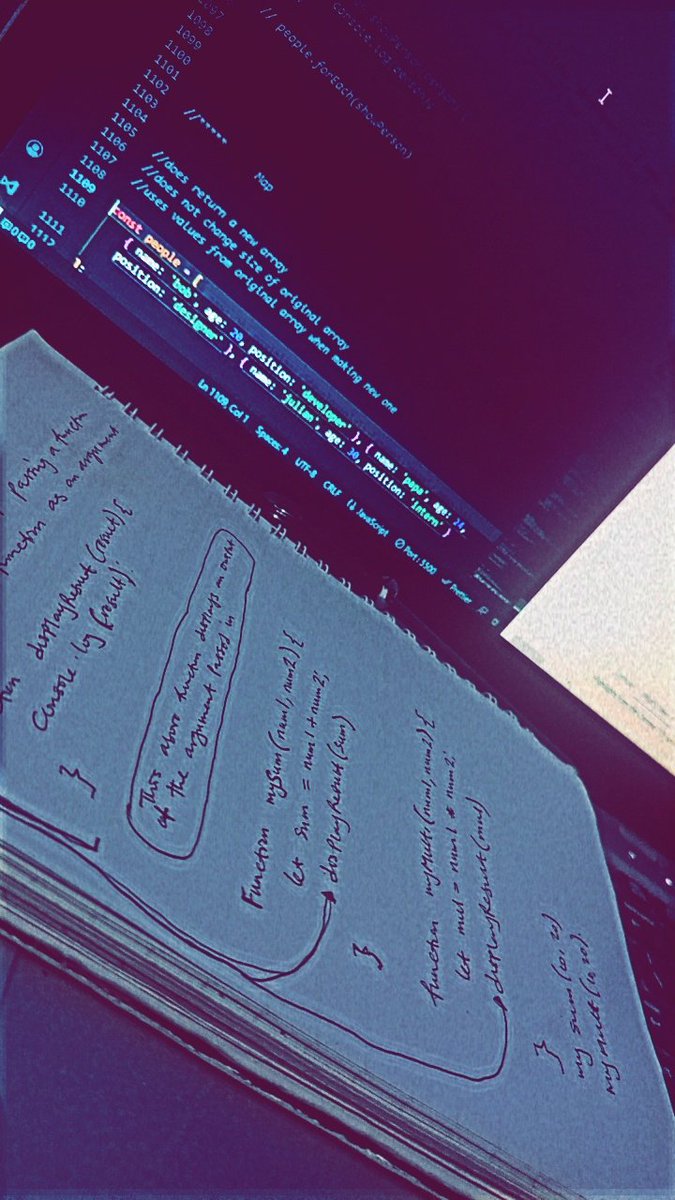 1097
1098
1099
1100
1101
1102
1103
1104
1105
1106
1107
1108
1109
1110
1111
1112
// people.forEach(showPerson)
//***** Map
//does return a new array
//does not change size of original array
//uses values from original array when making new one
const people = [
{ name: 'bob', age: 20, position: 'developer' }, { name: 'papa', age: 24,
position: 'designer' }, { name: 'julian', age: 30, position: 'intern' }
];
0 0 0
Ln 1109, Col 1 Spaces: 4 UTF-8 CRLF JavaScript Port : 5500 Prettier
Passing a function
function as an argument
displayResult (result) {
Console.log (result);
}
This above function displays an output
of the argument passed in
Function mySum(num1, num2) {
let sum = num1 + num2;
displayResult (sum)
}
function myMult (num1, num2) {
let mul = num1 * num2;
displayResult (mul)
}
my sum (10, 20)
my Mult (10, 20)